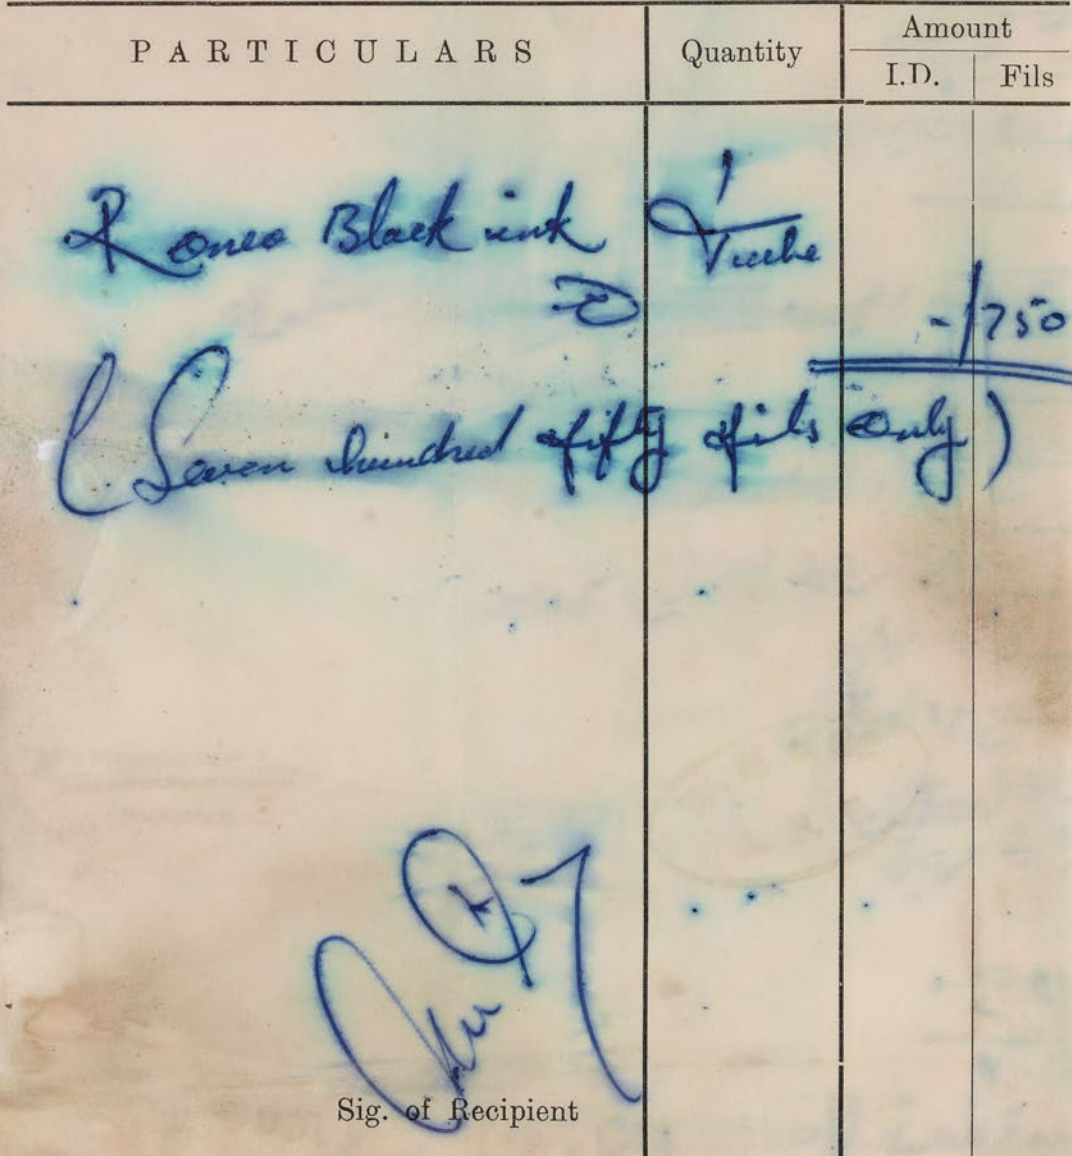 PARTICULARS Quantity Amount
I.D. Fils
Roneo Black ink 1
Tube
-/750
(Seven hundred fifty fils only)
Sig. of Recipient